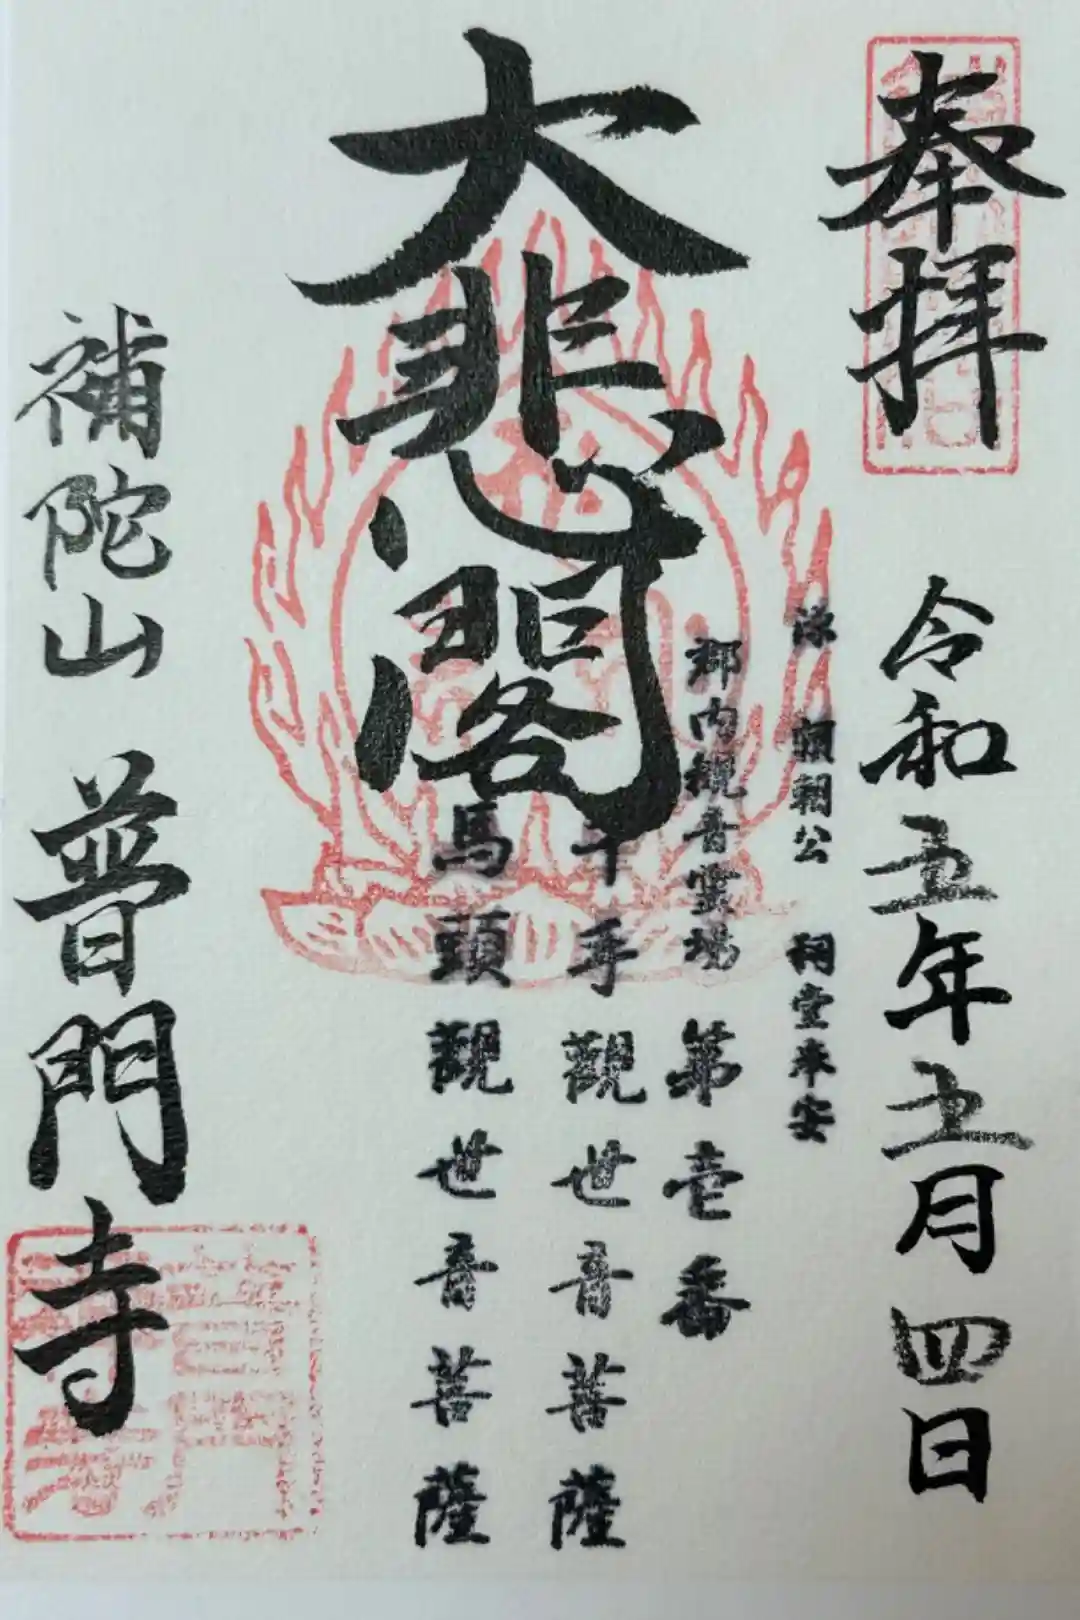 奉拝
令和五年五月四日
源 頼朝公 祠堂奉安
郡内観音霊場 第壱番
大悲閣
千手觀世音菩薩
馬頭觀世音菩薩
補陀山 普門寺